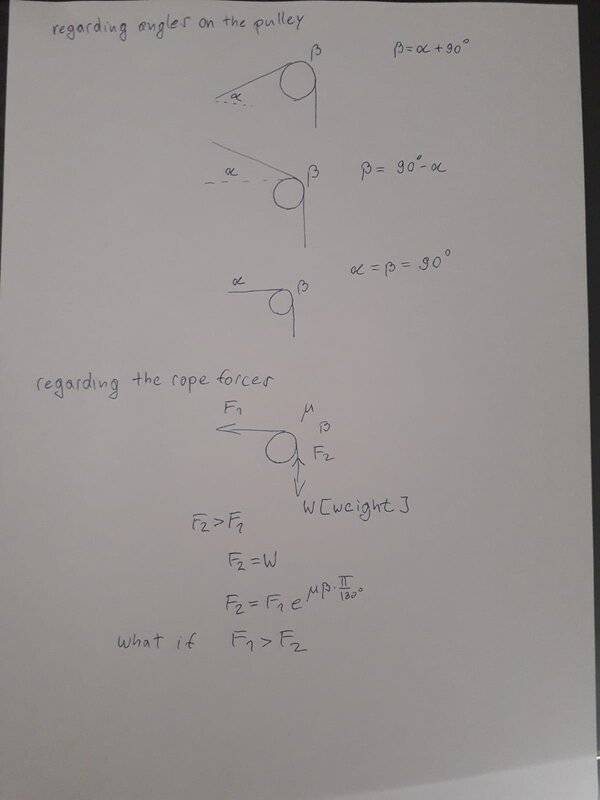 regarding angles on the pulley
β β=α+90°
α
α β β= 90°-α
α β α=β= 90°
regarding the rope forces
F₁ μ
β
F₂
W[weight]
F₂>F₁
F₂=W
F₂=F₁e^μβ·π/180°
what if F₁>F₂